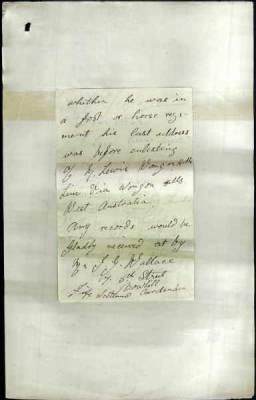 whither he was in
a foot or horse regi-
ment his last address
was before enlisting
c/o Lewis Wongon Hills
Line Via Wongon Hills
West Australia
Any records would be
gladly received at by
Mr J. G. Wallace
64 6th Street
Bowhill
Fife Scotland Cardenden